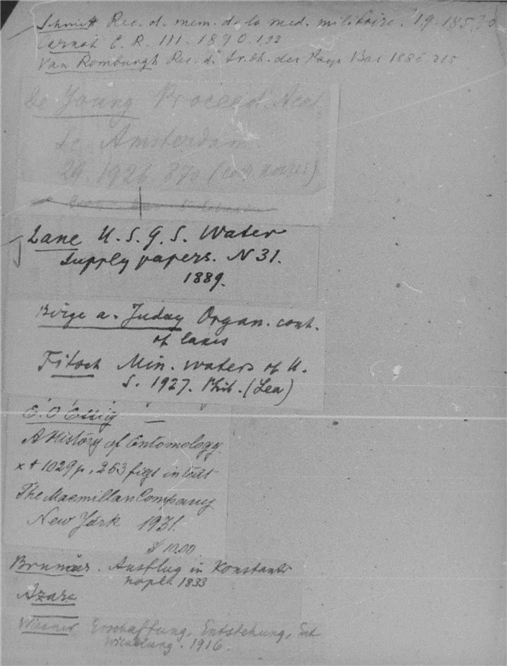 Schmitt Rec. d. mem. de la med. militaire. 19. 185.
C. R. 111. 1890. 122
Van Romburgh Rec. d. tr. ch. des Pays Bas 1886. 215
De Young Proceed. Acad.
Sc. Amsterdam
29. 1926. 870
Lane U. S. G. S. Water
supply papers. N 31.
1889.
Birge a. Juday Organ. cont.
of lakes
Fitsch Min. waters of U.
S. 1927. Phil. (Lea)
E. O. Essig
A History of Entomology
x + 1029 p, 263 figs in text
The Macmillan Company
New York 1931.
$ 10.00
Brunner. Ausflug in Konstanti-
nopel 1833
Azara
Wiesner Erschaffung, Entstehung, Ent
wicklung. 1916.